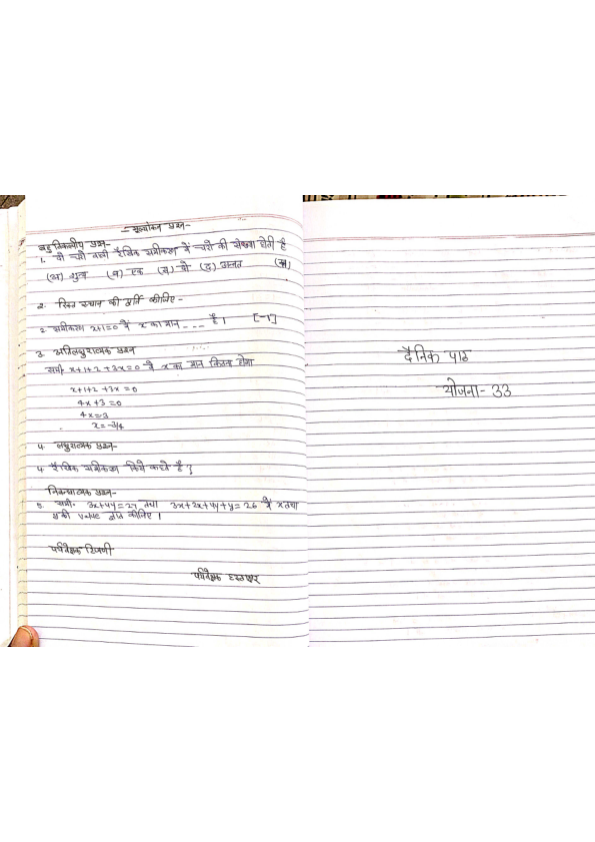 मूल्यांकन प्रश्न-
बहु विकल्पीय प्रश्न-
1. दो चरो वाली रैखिक समीकरण में चरो की संख्या होती है
(अ) शून्य (ब) एक (स) दो (द) अनन्त (स)
2. रिक्त स्थान की पूर्ति कीजिए -
2 समीकरण x+1=0 में x का मान - - - - है। [-1]
3. अतिलघुरात्मक प्रश्न
समी. x+1+2+3x=0 में x का मान कितना होगा
x+1+2+3x=0
4x+3=0
4x=-3
x=-3/4
4. लघुरात्मक प्रश्न-
4 रैखिक समीकरण किसे कहते है?
निबन्धात्मक प्रश्न-
5. समी. 3x+4y=27 तथा 3x+2x+4y+y=26 में x तथा
y की value ज्ञात कीजिए।
पर्यवेक्षक टिप्पणी
पर्यवेक्षक हस्ताक्षर
दैनिक पाठ
योजना- 33